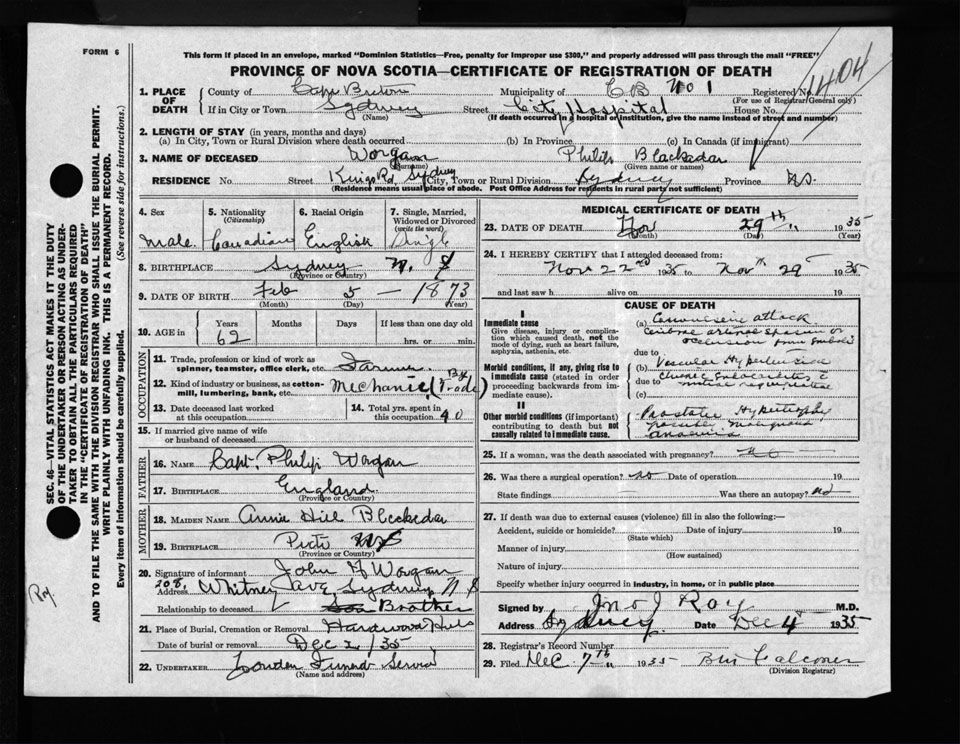 FORM 6
This form if placed in an envelope, marked "Dominion Statistics—Free, penalty for improper use $300," and properly addressed will pass through the mail "FREE"
PROVINCE OF NOVA SCOTIA—CERTIFICATE OF REGISTRATION OF DEATH
1404
1. PLACE OF DEATH County of Cape Breton Municipality of C B No 1 Registered No.
(For use of Registrar General only)
If in City or Town Sydney Street City Hospital House No.
(Name) (If death occurred in a hospital or institution, give the name instead of street and number)
2. LENGTH OF STAY (in years, months and days)
(a) In City, Town or Rural Division where death occurred (b) In Province (c) In Canada (if immigrant)
3. NAME OF DECEASED Worgan Philip Blackadar
(Surname) (Given name or names)
RESIDENCE No. Street Kings Rd, Sydney City, Town or Rural Division Sydney Province N.S.
(Residence means usual place of abode. Post Office Address for residents in rural parts not sufficient)
SEC. 46—VITAL STATISTICS ACT MAKES IT THE DUTY
OF THE UNDERTAKER OR PERSON ACTING AS UNDER-
TAKER TO OBTAIN ALL THE PARTICULARS REQUIRED
IN THE "CERTIFICATE OF REGISTRATION OF DEATH"
AND TO FILE THE SAME WITH THE DIVISION REGISTRAR WHO SHALL ISSUE THE BURIAL PERMIT.
WRITE PLAINLY WITH UNFADING INK. THIS IS A PERMANENT RECORD.
Every item of information should be carefully supplied. (See reverse side for instructions.)
Roy.
4. Sex 5. Nationality (Citizenship) 6. Racial Origin 7. Single, Married, Widowed or Divorced (write the word)
Male Canadian English Single
8. BIRTHPLACE Sydney N. S
(Province or Country)
9. DATE OF BIRTH Feb 5 — 1873
(Month) (Day) (Year)
10. AGE in Years Months Days If less than one day
62 hrs. or min.
OCCUPATION
11. Trade, profession or kind of work as spinner, teamster, office clerk, etc. Farmer
12. Kind of industry or business, as cotton-mill, lumbering, bank, etc. Mechanic (By Trade)
13. Date deceased last worked at this occupation 14. Total yrs. spent in this occupation 40
15. If married give name of wife or husband of deceased
FATHER
16. NAME Capt. Philip Worgan
17. BIRTHPLACE England
(Province or Country)
MOTHER
18. MAIDEN NAME Annie Hill Blackadar
19. BIRTHPLACE Pictou N S
(Province or Country)
20. Signature of informant John G Worgan
Address 208, Whitney Ave, Sydney N S
Relationship to deceased Son Brother
21. Place of Burial, Cremation or Removal Hardwood Hill
Date of burial or removal Dec 2/35
22. UNDERTAKER Lowden Funeral Service
(Name and address)
MEDICAL CERTIFICATE OF DEATH
23. DATE OF DEATH Nov 29th 1935
(Month) (Day) (Year)
24. I HEREBY CERTIFY that I attended deceased from:
Nov 22nd 1935 to Nov 29 1935
and last saw h alive on 19
CAUSE OF DEATH
I
Immediate cause
Give disease, injury or complication which caused death, not the mode of dying, such as heart failure, asphyxia, asthenia, etc.
(a) Convulsive attack
occlusion from emboli
due to
Morbid conditions, if any, giving rise to immediate cause (stated in order proceeding backwards from immediate cause).
(b) Vascular Hypertension
due to
mitral regurgitation
(c)
II
Other morbid conditions (if important) contributing to death but not causally related to immediate cause.
Prostatic Hypertrophy
possible malignant
anaemia
25. If a woman, was the death associated with pregnancy? no
26. Was there a surgical operation? no Date of operation 19
State findings Was there an autopsy? no
27. If death was due to external causes (violence) fill in also the following:—
Accident, suicide or homicide? Date of injury 19
(State which)
Manner of injury
(How sustained)
Nature of injury
Specify whether injury occurred in industry, in home, or in public place
Signed by Jno J Roy M.D.
Address Sydney Date Dec 4 1935
28. Registrar's Record Number
29. Filed Dec 7th 1935 Falconer
(Division Registrar)